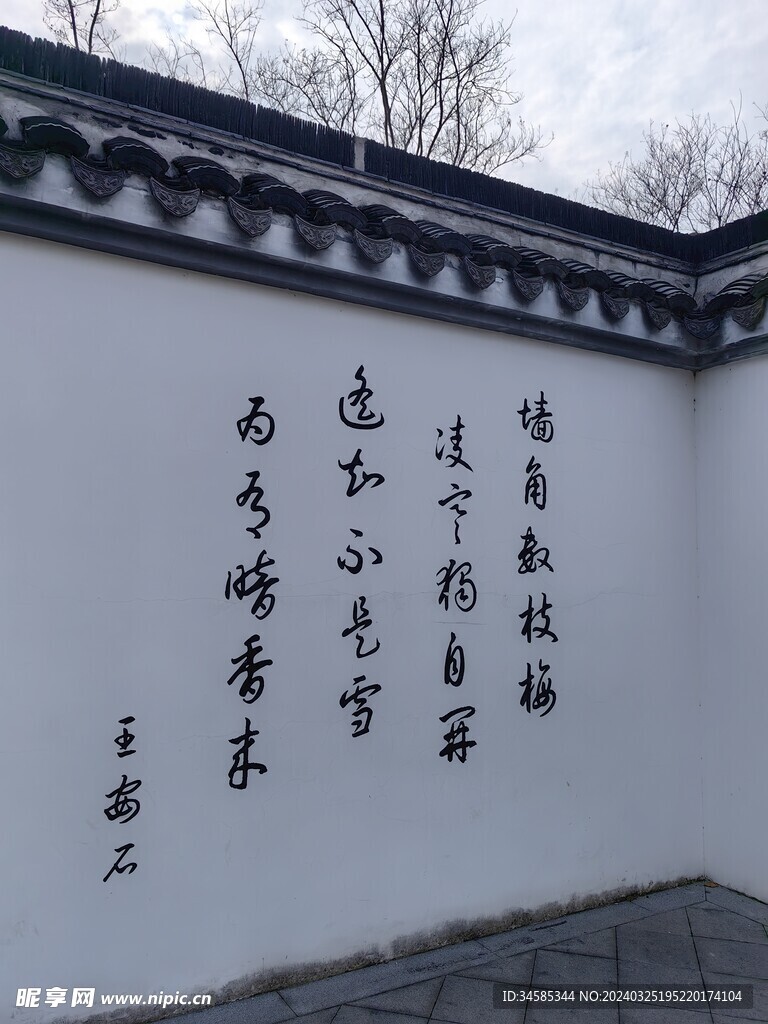 墙角数枝梅
凌寒獨自開
遙知不是雪
为有暗香来
王安石
昵享网 www.nipic.cn
ID:34585344 NO:20240325195220174104